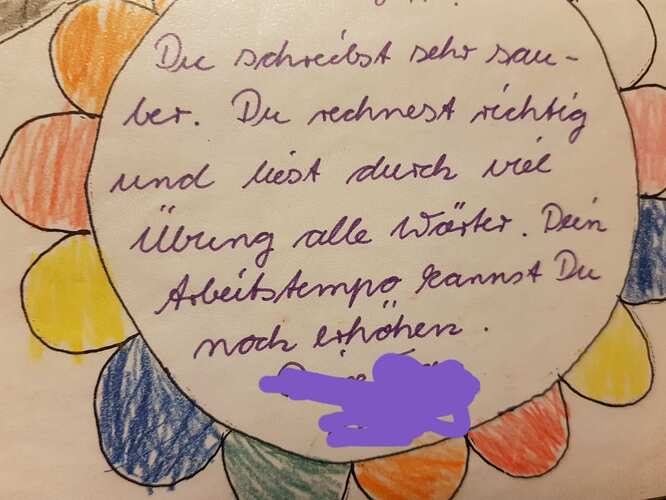 Du schreibst sehr sau-
ber. Du rechnest richtig
und liest durch viel
Übung alle Wörter. Dein
Arbeitstempo kannst Du
noch erhöhen.